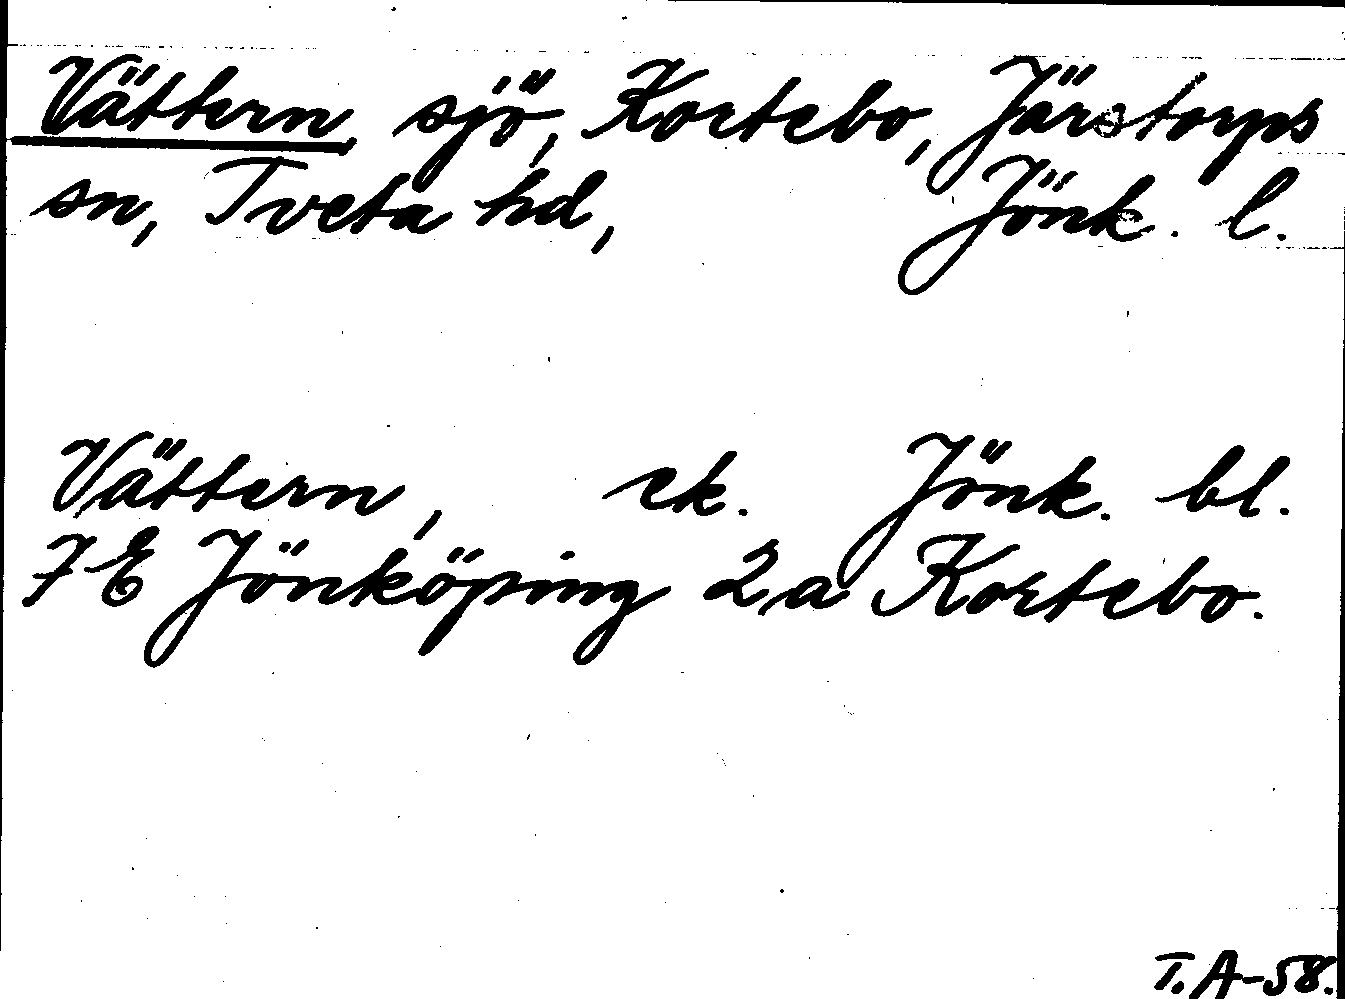 Vättern, sjö, Kortebo, Järstorps
sn, Tveta hd, Jönk. l.
Vättern, ek. Jönk. bl.
7E Jönköping 2a Kortebo.
T.A-58.